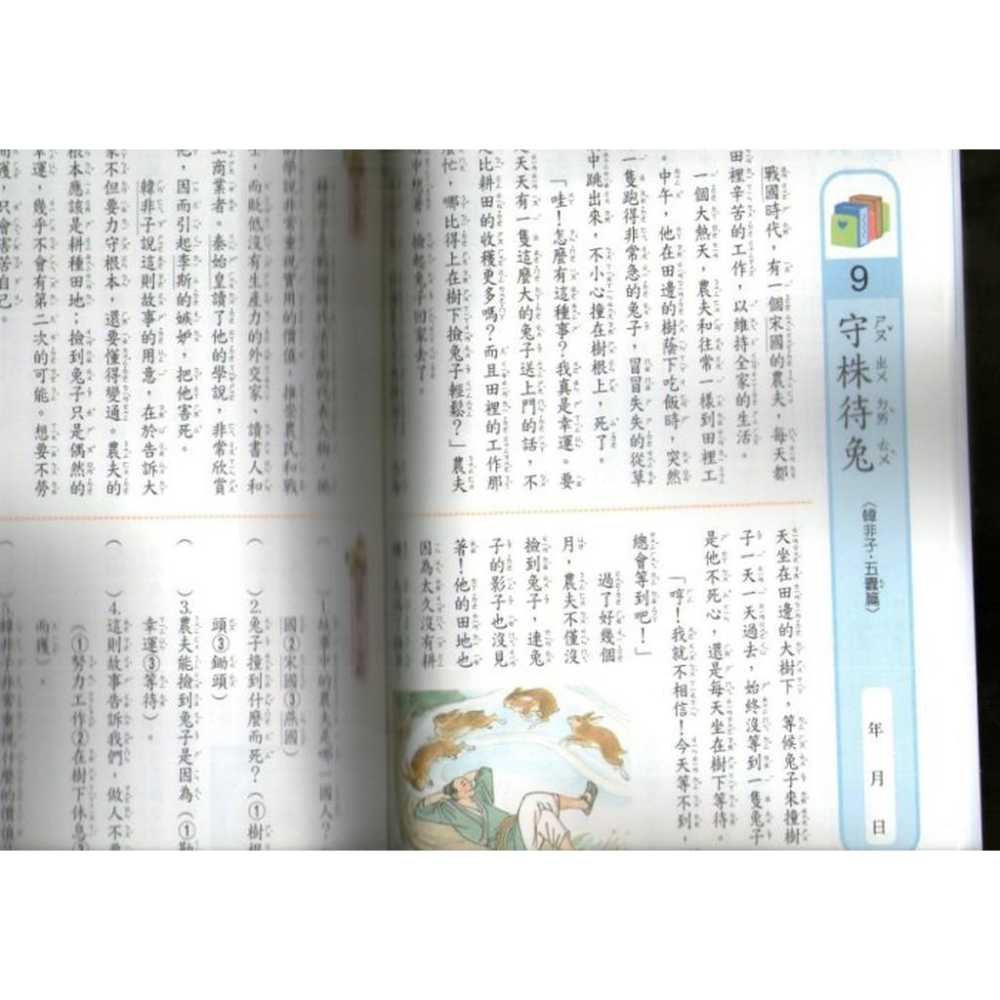 9
守株待兔
〈韓非子·五蠹篇〉
年 月 日
戰國時代,有一個宋國的農夫,每天都
田裡辛苦的工作,以維持全家的生活。
一個大熱天,農夫和往常一樣到田裡工
。中午,他在田邊的樹蔭下吃飯時,突然
一隻跑得非常急的兔子,冒冒失失的從草
中跳出來,不小心撞在樹根上,死了。
「哇!怎麼有這種事?我真是幸運。要
天天有一隻這麼大的兔子送上門的話,不
是比耕田的收穫更多嗎?而且田裡的工作那
麼忙,哪比得上在樹下撿兔子輕鬆?」農夫
中想著。撿起兔子回家去了。
天坐在田邊的大樹下,等候兔子來撞樹
子一天一天過去,始終沒等到一隻兔子
是他不死心,還是每天坐在樹下等待。
「哼!我就不相信!今天等不到,
總會等到吧!」
過了好幾個
月,農夫不僅沒
撿到兔子,連兔
子的影子也沒見
著!他的田地也
因為太久沒有耕
的學說非常重視實用的價值,推崇農民和戰
士,而貶低沒有生產力的外交家、讀書人和
工商業者。秦始皇讀了他的學說,非常欣賞
他,因而引起李斯的嫉妒,把他害死。
韓非子說這則故事的用意,在於告訴大
家不但要力守根本,還要懂得變通。農夫的
根本應該是耕種田地;撿到兔子只是偶然的
幸運,幾乎不會有第二次的可能。想要不勞
而獲,只會害苦自己。
( )1.事中的農夫是哪一國人?
國②宋國③燕國)
( )2.兔子撞到什麼而死?(①樹根
頭③鋤頭)
( )3.農夫能撿到兔子是因為(①勤
幸運③等待)。
( )4.這則故事告訴我們,做人不要
(①努力工作②在樹下休息③
而獲)。